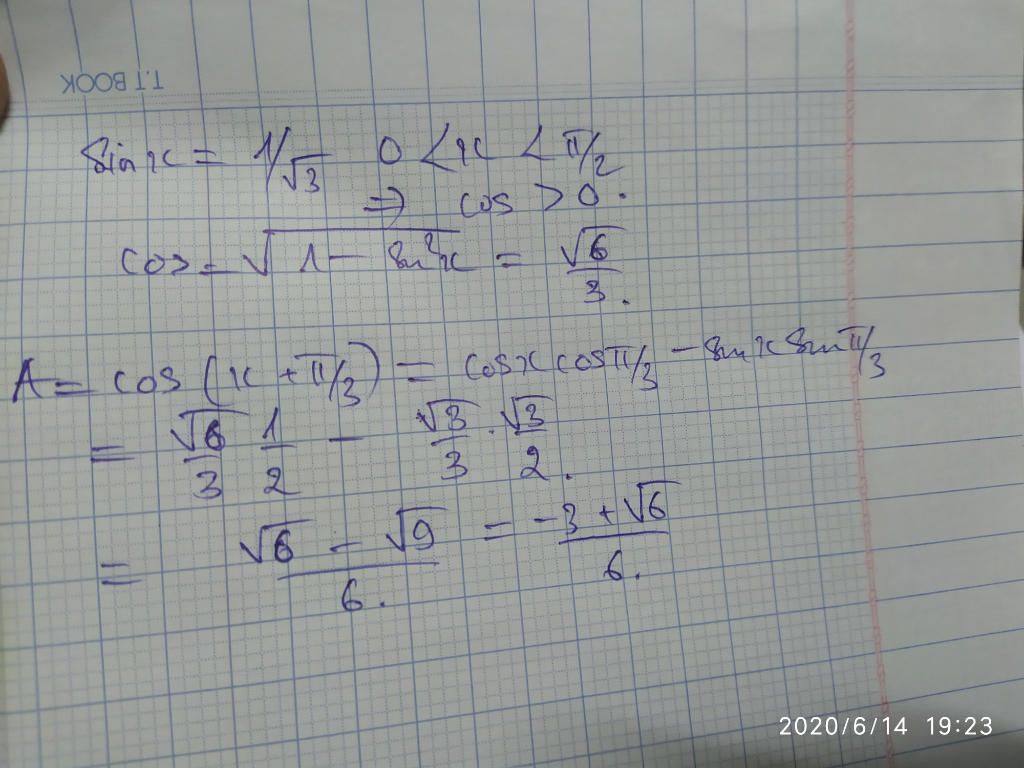 T.T BOOK
Sin x = 1/√3 0 < x < π/2
⇒ cos > 0.
cos = √(1 - sin²x) = √6/3.
A = cos (x + π/3) = cosx cos π/3 - sin x sin π/3
= √6/3 1/2 - √3/3 . √3/2.
= (√6 - √9)/6. = (-3 + √6)/6.
2020/6/14 19:23